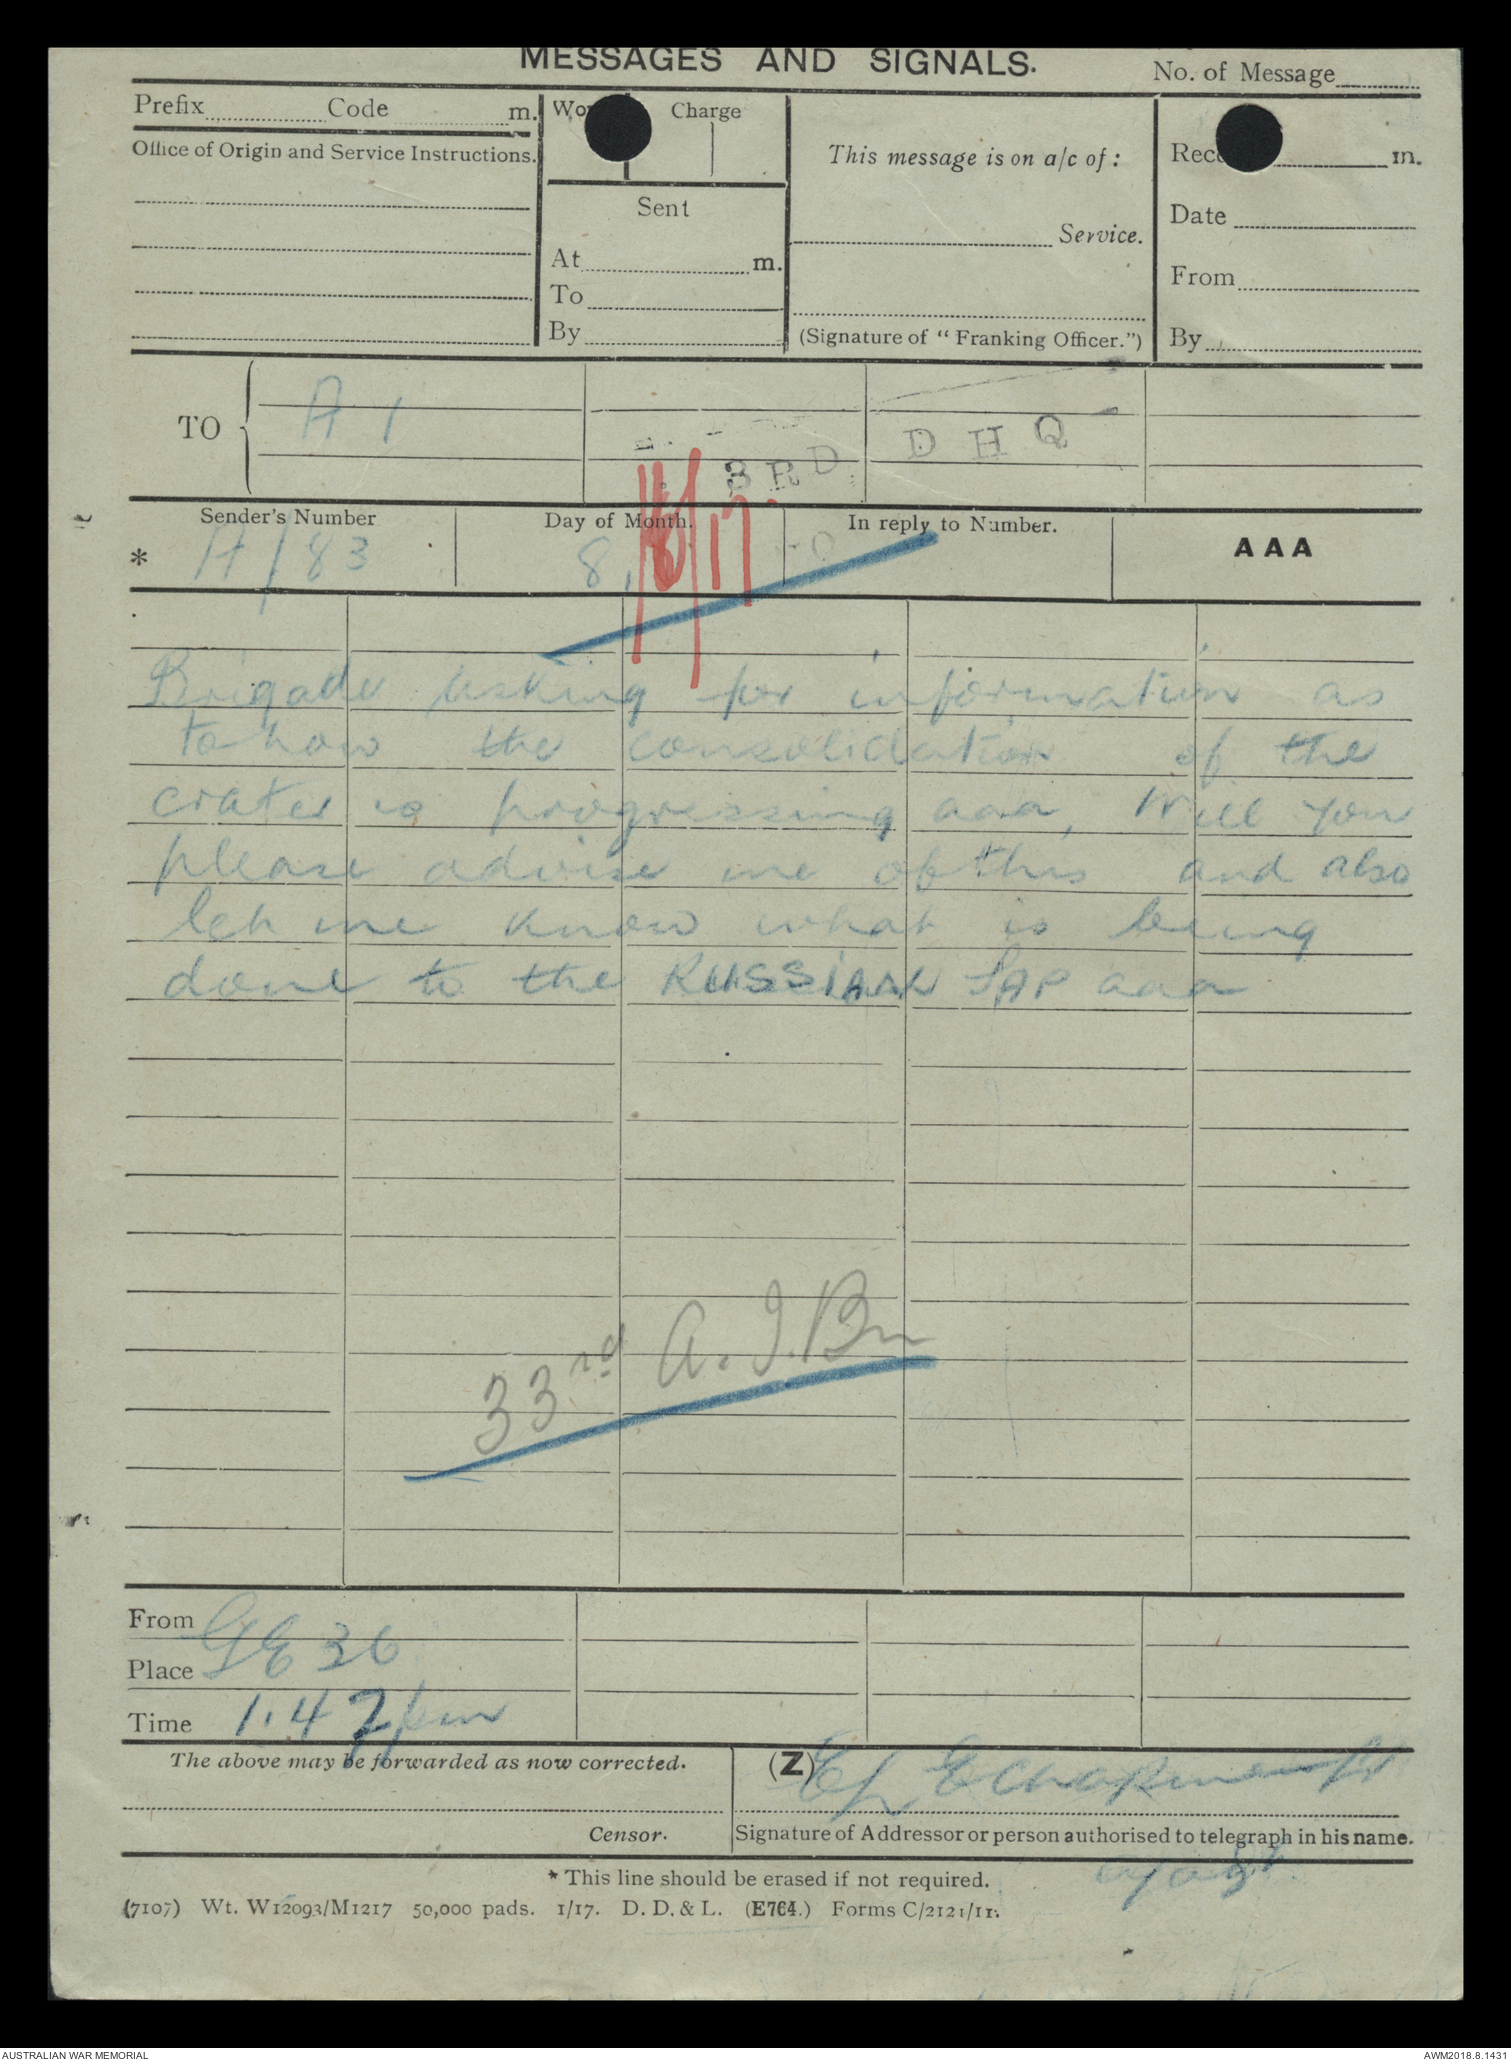 MESSAGES AND SIGNALS.
No. of Message
Prefix Code m.
Charge
Office of Origin and Service Instructions.
This message is on a/c of :
m.
Sent
Date
Service.
At m.
From
To
By
(Signature of "Franking Officer.")
By
TO
A 1
3RD
D H Q
Sender's Number
Day of Month.
In reply to Number.
AAA
*
H/83
8
Brigade asking for information as
to how the consolidation of the
crater is progressing aaa, Will you
please advise me of this and also
let me know what is being
done to the RUSSIAN SAP aaa
33rd A.I.Bn
From
GE 36
Place
Time 1.47pm
The above may be forwarded as now corrected.
(Z)
Censor.
Signature of Addressor or person authorised to telegraph in his name.
* This line should be erased if not required.
(7107) Wt. W12093/M1217 50,000 pads. 1/17. D. D. & L. (E764.) Forms C/2121/11.
AUSTRALIAN WAR MEMORIAL
AWM2018.8.1431